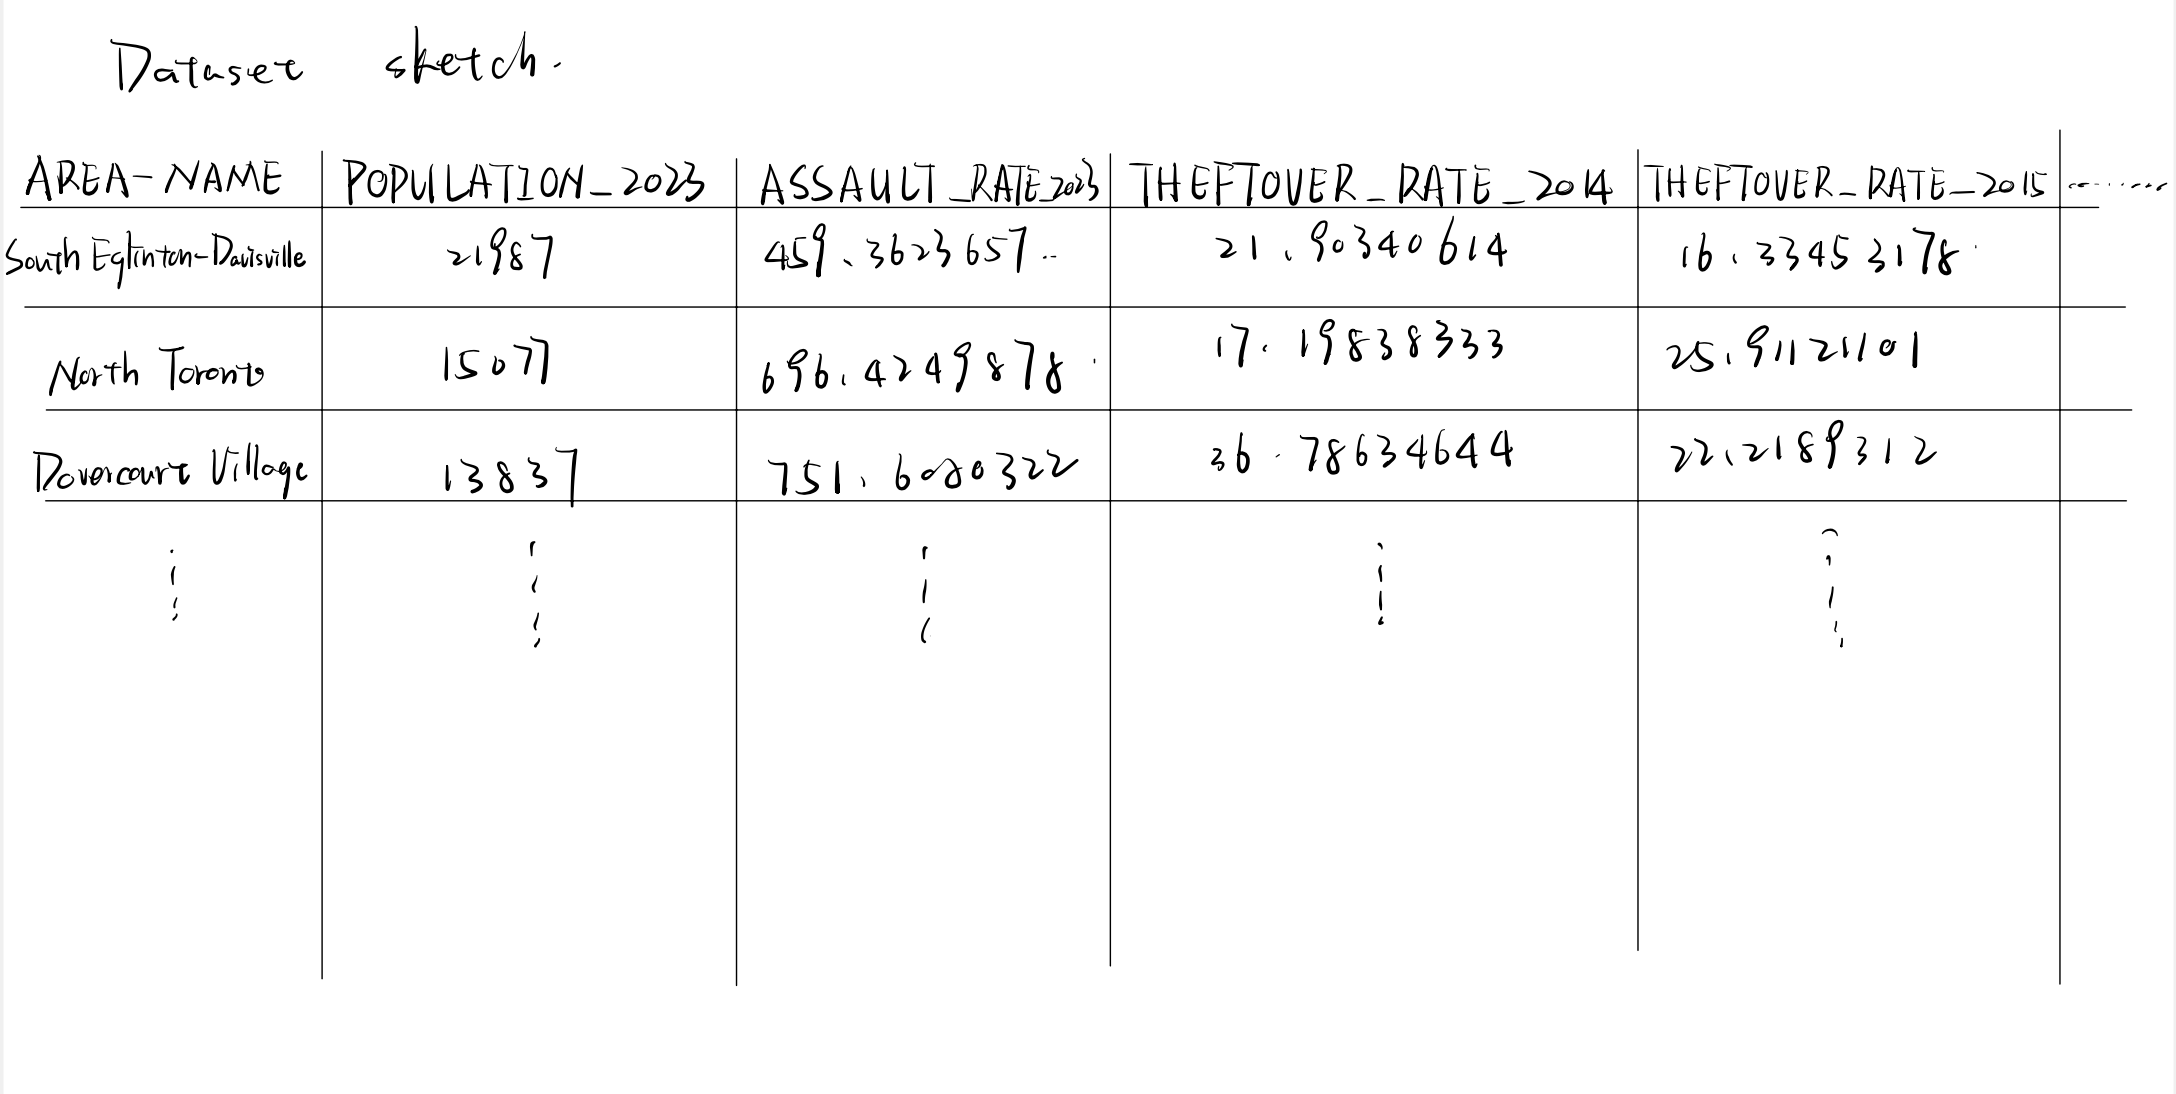 Dataset sketch.
AREA-NAME POPULATION_2023 ASSAULT_RATE_2023 THEFTOVER_RATE_2014 THEFTOVER_RATE_2015 ........
South Eglinton-Davisville 21987 459.3623657.. 21.90340614 16.33453178
North Toronto 15077 696.4249878 17.19838333 25.91121101
Dovercourt Village 13837 751.6080322 36.78634644 22.2189312